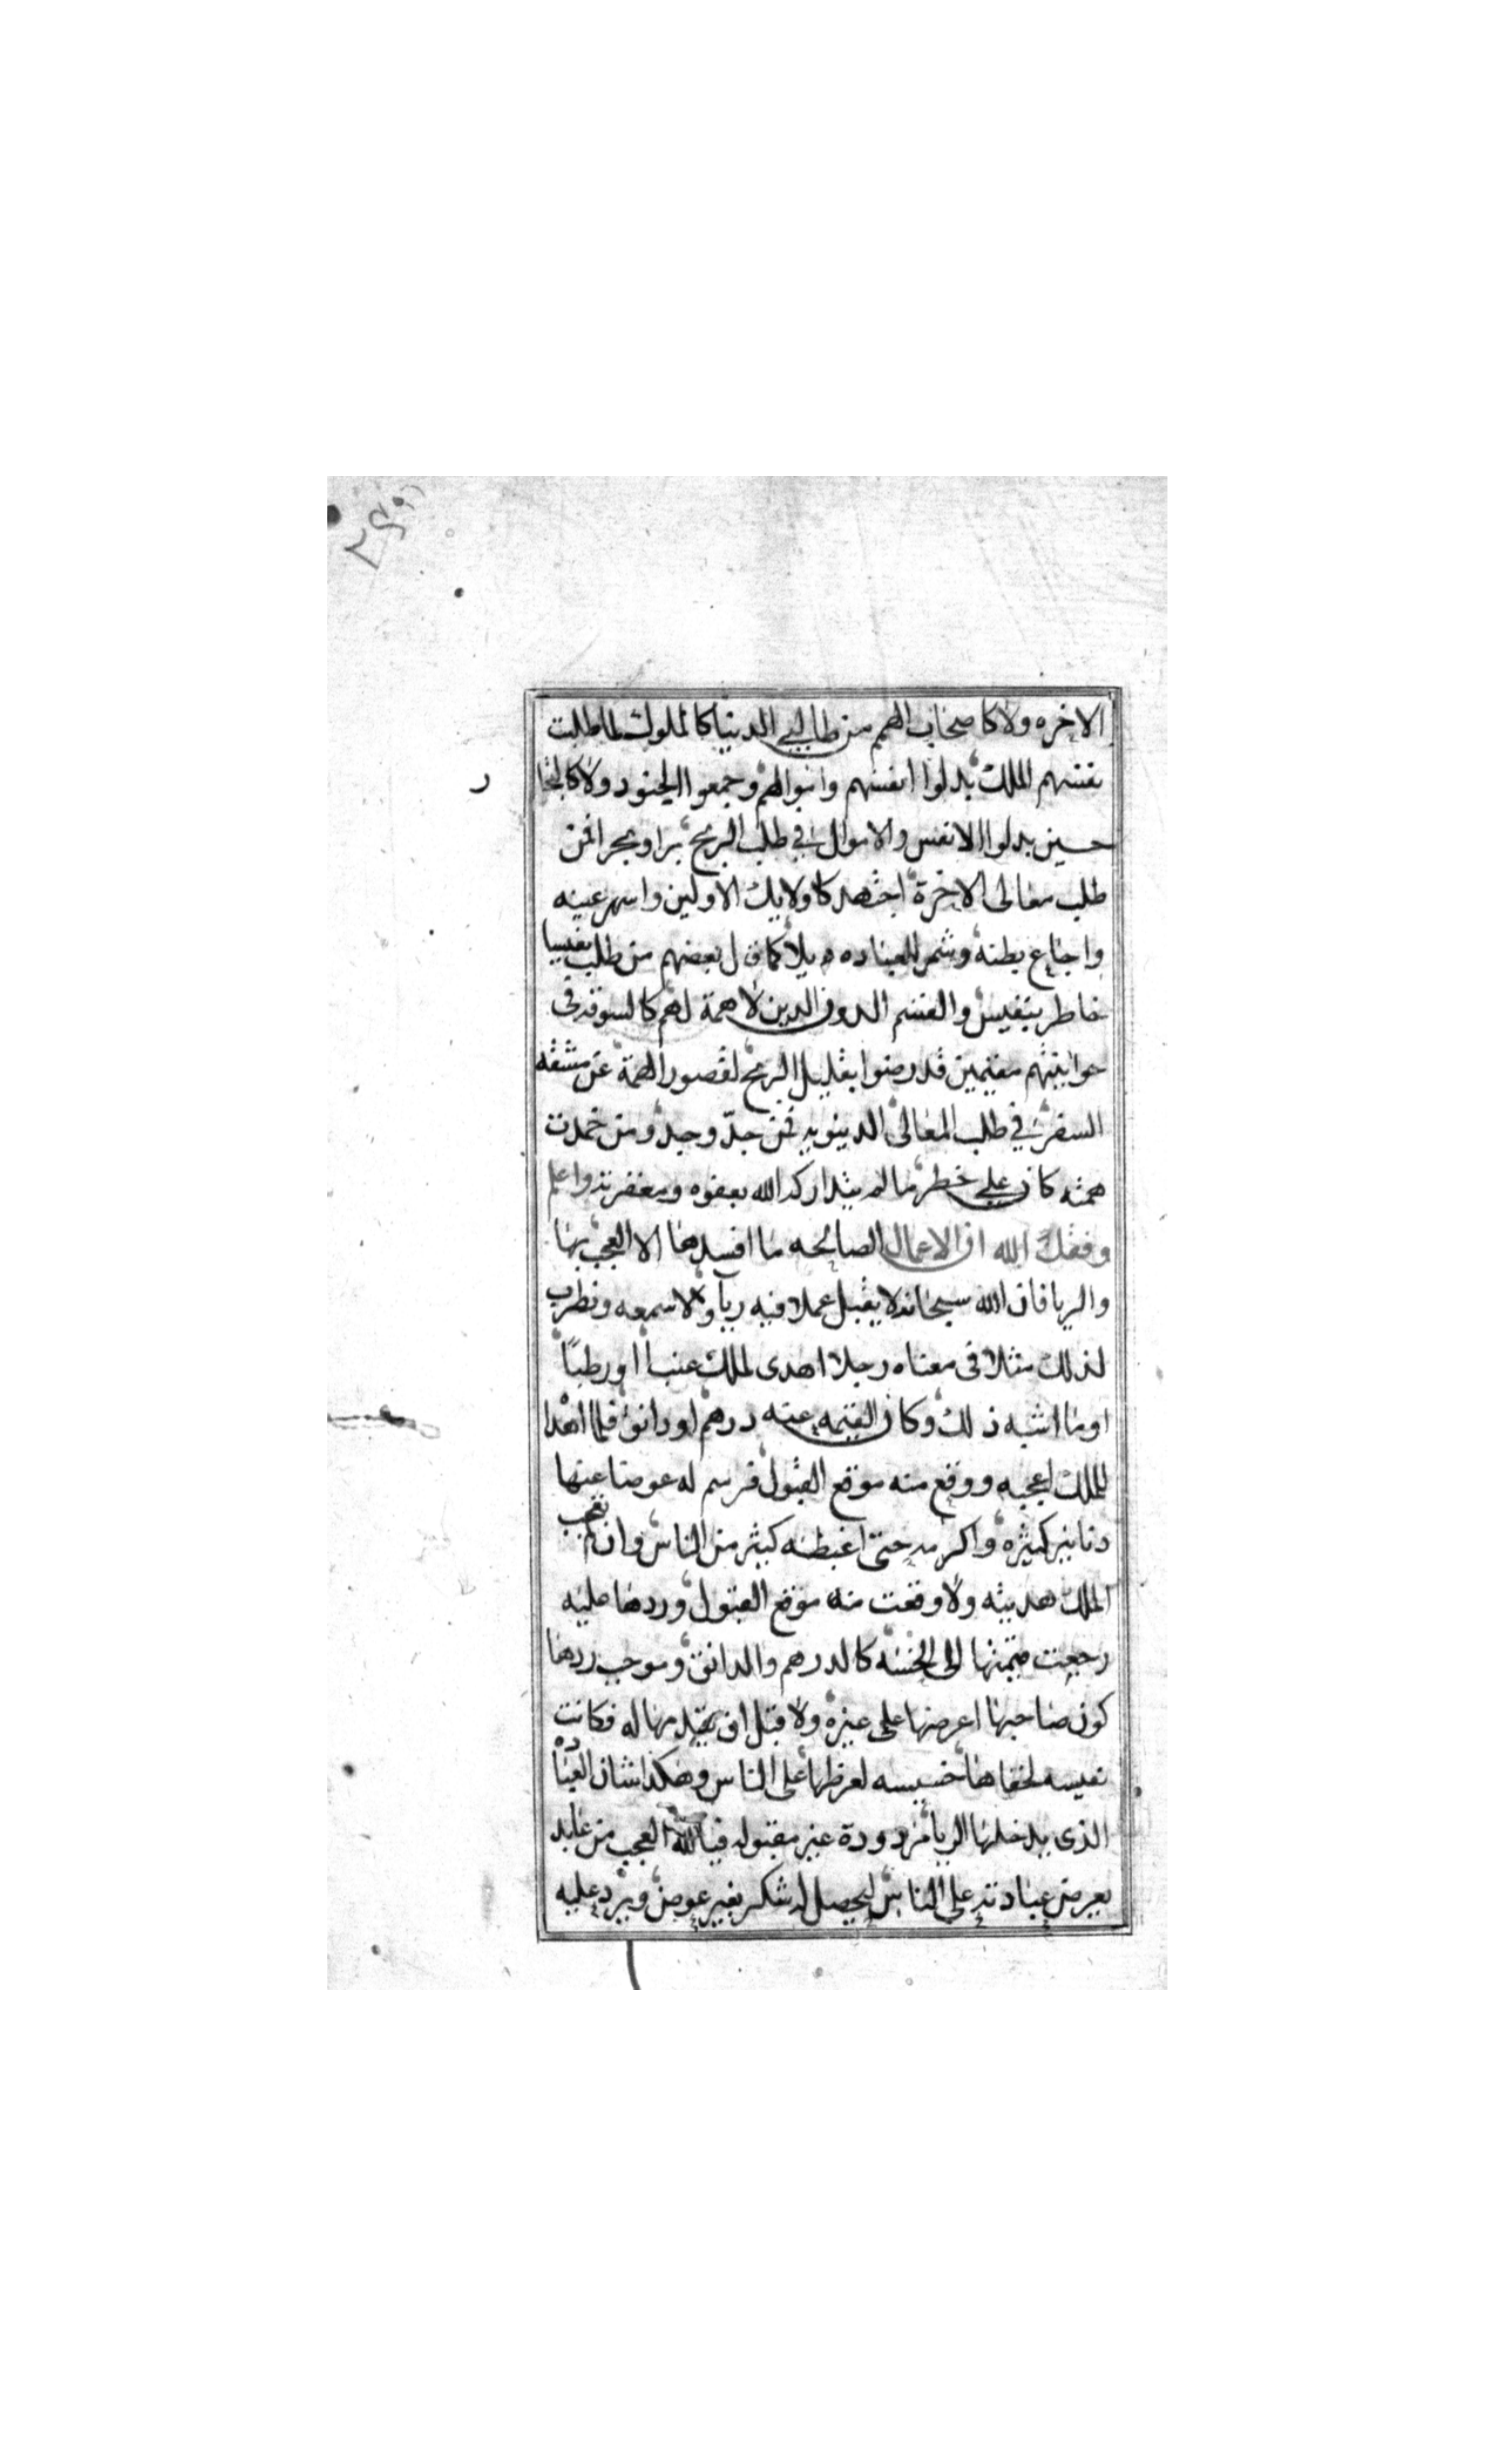 الاخره ولا كاصحاب الهمم من طالبي الدنيا كالملوك لما طلبت
نفسهم الملك بدلوا انفسهم واموالهم وجمعوا الجنود ولا كالتجا
ر
حسين بدلوا الانفس والاموال في طلب الربح برا وبحرا فمن
طلب معالى الاخرة اجتهد كاولايك الاولين واسهر عينه
واجاع بطنه وشمر للعباده ذيلا كما قال بعضهم من طلب نفيسا
خاطر بنفيس والقسم الدون الذين لا همة لهم كالسوقه في
حوانيتهم مقيمين قد رضوا بقليل الربح لقصور الهمة عن مشقه
السفر في طلب المعالى الدينويه فمن جدّ وجد ومن خمدت
همته كان على خطر ما لم يتداركه الله بعفوه ومغفرته واعلم
وفقك الله ان الاعمال الصالحه ما افسدها الا العجب بها
والريا فان الله سبحانه لا يقبل عملا فيه رياء ولا سمعه ونضرب
لذلك مثلا في معناه رجلا اهدى لملك عنبا او رطبًا
او ما اشبه ذلك وكان القيمه عنه درهم او دانق فلما اهدا
للملك اعجبه ووقع منه موقع القبول فرسم له عوضا عنها
دنانير كثيره واكرمه حتى اغبطه كثير من الناس وان لم تعجب
الملك هديته ولا وقعت منه موقع القبول وردها عليه
رجعت قيمتها الى الخسه كالدرهم والدانق وموجب ردها
كون صاحبها اعرضها على غيره ولا قبل ان يقدمها له فكانت
نفيسه لخفاها خسيسه لعرظها على الناس وهكذا شان العباده
الذى يدخلها الريا مردودة غير مقبوله فيالله العجب من عابد
يعرض عبادته على الناس ليحصل له شكر بغير عوض ويرد عليه